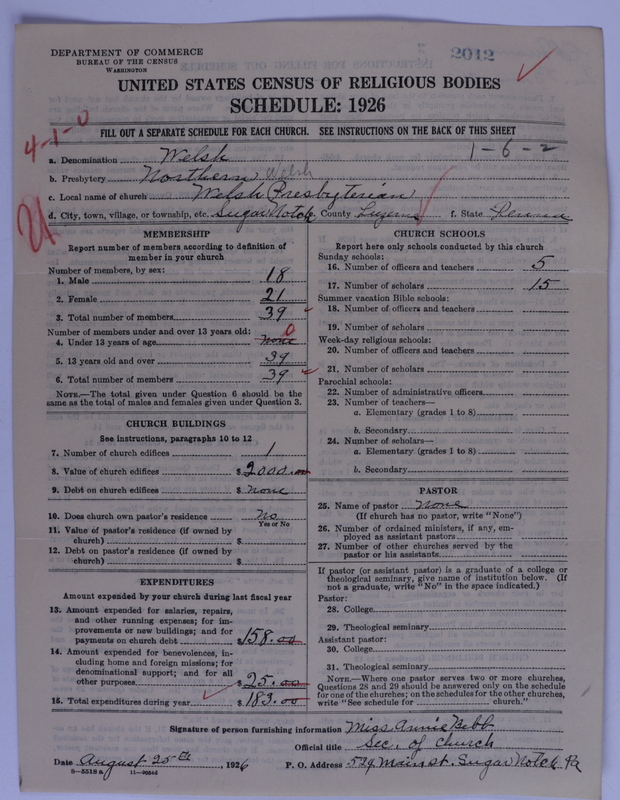 2012
DEPARTMENT OF COMMERCE
BUREAU OF THE CENSUS
WASHINGTON
UNITED STATES CENSUS OF RELIGIOUS BODIES
SCHEDULE: 1926
4-1-0
FILL OUT A SEPARATE SCHEDULE FOR EACH CHURCH. SEE INSTRUCTIONS ON THE BACK OF THIS SHEET
1-6-2
a. Denomination Welsh
b. Presbytery Northern Welsh
c. Local name of church Welsh Presbyterian
d. City, town, village, or township, etc. Sugar Notch e. County Luzerne f. State Penna
MEMBERSHIP
Report number of members according to definition of
member in your church
Number of members, by sex:
1. Male 18
2. Female 21
3. Total number of members 39
Number of members under and over 13 years old:
4. Under 13 years of age none 0
5. 13 years old and over 39
6. Total number of members 39
NOTE.—The total given under Question 6 should be the
same as the total of males and females given under Question 3.
CHURCH BUILDINGS
See instructions, paragraphs 10 to 12
7. Number of church edifices 1
8. Value of church edifices $2000.00
9. Debt on church edifices $ none
10. Does church own pastor's residence No
Yes or No
11. Value of pastor's residence (if owned by
church) $
12. Debt on pastor's residence (if owned by
church) $
EXPENDITURES
Amount expended by your church during last fiscal year
13. Amount expended for salaries, repairs,
and other running expenses; for im-
provements or new buildings; and for
payments on church debt $158.00
14. Amount expended for benevolences, in-
cluding home and foreign missions; for
denominational support; and for all
other purposes $25.00
15. Total expenditures during year $183.00
CHURCH SCHOOLS
Report here only schools conducted by this church
Sunday schools:
16. Number of officers and teachers 5
17. Number of scholars 15
Summer vacation Bible schools:
18. Number of officers and teachers
19. Number of scholars
Week-day religious schools:
20. Number of officers and teachers
21. Number of scholars
Parochial schools:
22. Number of administrative officers
23. Number of teachers—
a. Elementary (grades 1 to 8)
b. Secondary
24. Number of scholars—
a. Elementary (grades 1 to 8)
b. Secondary
PASTOR
25. Name of pastor None
(If church has no pastor, write "None")
26. Number of ordained ministers, if any, em-
ployed as assistant pastors
27. Number of other churches served by the
pastor or his assistants
If pastor (or assistant pastor) is a graduate of a college or
theological seminary, give name of institution below. (If
not a graduate, write "No" in the space indicated.)
Pastor:
28. College
29. Theological seminary
Assistant pastor:
30. College
31. Theological seminary
NOTE.—Where one pastor serves two or more churches,
Questions 28 and 29 should be answered only on the schedule
for one of the churches; on the schedules for the other churches,
write "See schedule for church."
Signature of person furnishing information Miss Annie Bebb
Official title Sec. of church
Date August 25th, 1926 P. O. Address 529 Main st. Sugar Notch Pa
8-5518a 11-9084d